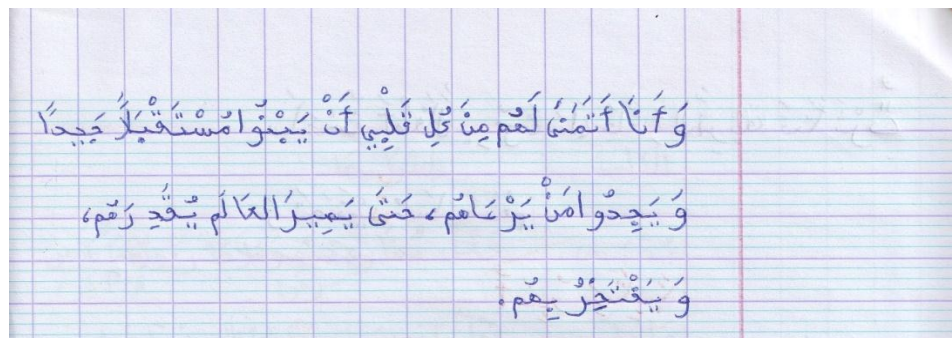 وَ أَنَا أَتَمَنَى لَهُم مِنْ كُلِ قَلْبِي أَنْ يَبْنُوا مُسْتَقْبَلاً جَيِدًا
وَ يَجِدُوا مَنْ يَرْعَاهُم، حَتَى يَصِيرَ العَالَم يُقَدِرَهُم،
وَ يَفْتَخِرُ بِهُم.